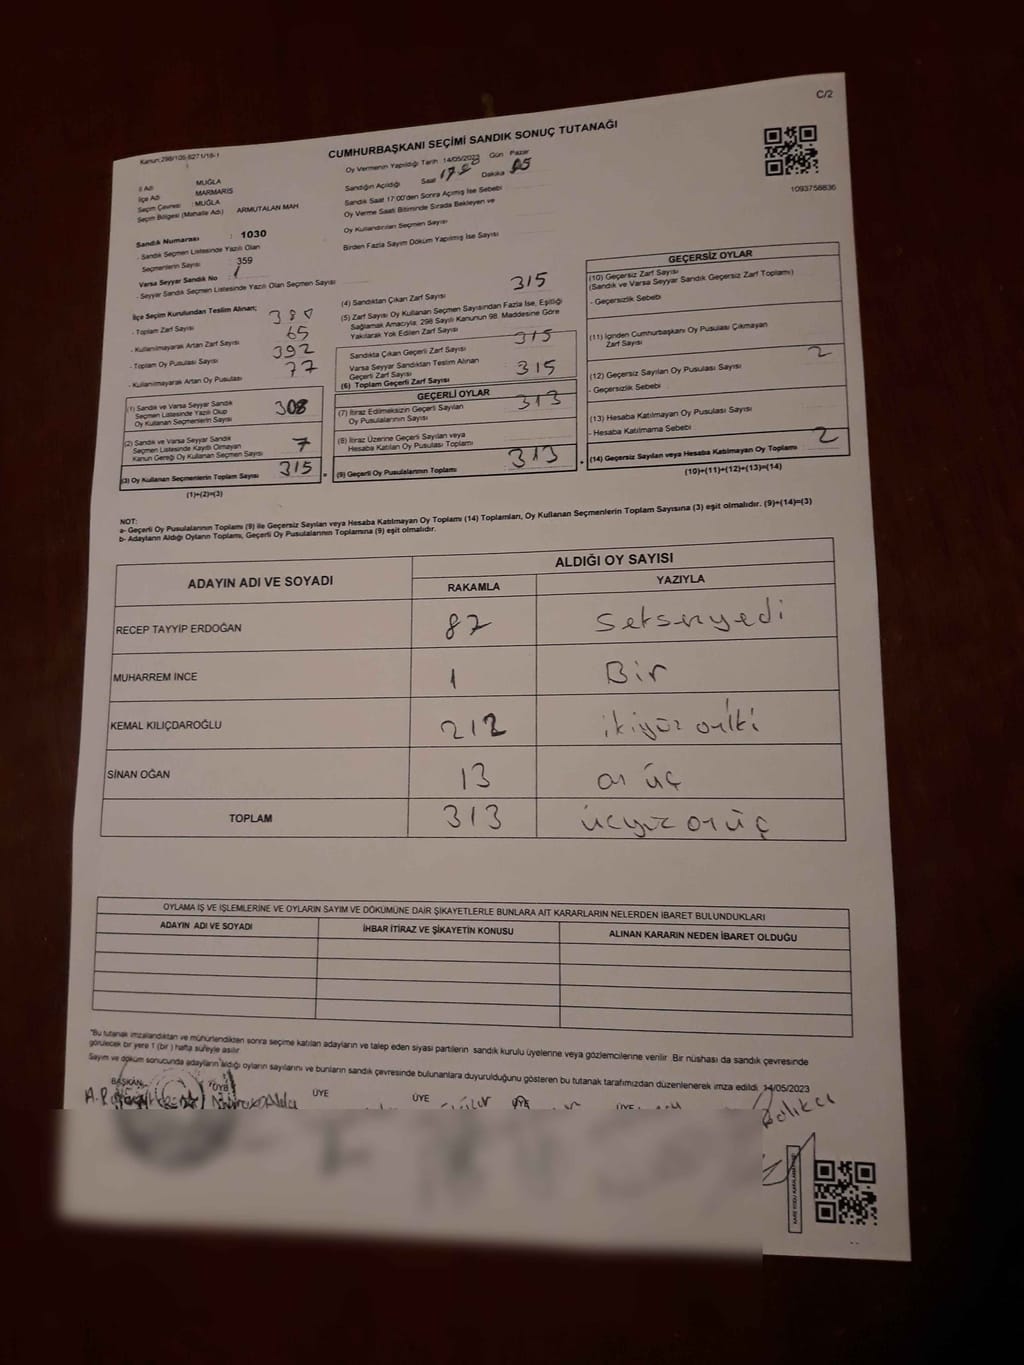 C/2
Kanun:298/105-6271/18-1
CUMHURBAŞKANI SEÇİMİ SANDIK SONUÇ TUTANAĞI
1093758836
İl Adı : MUĞLA
İlçe Adı : MARMARİS
Seçim Çevresi : MUĞLA
Seçim Bölgesi (Mahalle Adı) : ARMUTALAN MAH
Sandık Numarası : 1030
- Sandık Seçmen Listesinde Yazılı Olan
Seçmenlerin Sayısı : 359
Varsa Seyyar Sandık No :
- Seyyar Sandık Seçmen Listesinde Yazılı Olan Seçmen Sayısı
Oy Vermenin Yapıldığı Tarih 14/05/2023 Gün Pazar
Sandığın Açıldığı Saat Dakika 05
Sandık Saat 17:00'den Sonra Açılmış İse Sebebi
Oy Verme Saati Bitiminde Sırada Bekleyen ve
Oy Kullandırılan Seçmen Sayısı
Birden Fazla Sayım Döküm Yapılmış İse Sayısı
İlçe Seçim Kurulundan Teslim Alınan;
- Toplam Zarf Sayısı 380
- Kullanılmayarak Artan Zarf Sayısı 65
- Toplam Oy Pusulası Sayısı 392
- Kullanılmayarak Artan Oy Pusulası 77
(1) Sandık ve Varsa Seyyar Sandık
Seçmen Listesinde Yazılı Olup
Oy Kullanan Seçmenlerin Sayısı 308
(2) Sandık ve Varsa Seyyar Sandık
Seçmen Listesinde Kayıtlı Olmayan
Kanun Gereği Oy Kullanan Seçmen Sayısı 7
(3) Oy Kullanan Seçmenlerin Toplam Sayısı 315
(1)+(2)=(3)
(4) Sandıktan Çıkan Zarf Sayısı 315
(5) Zarf Sayısı Oy Kullanan Seçmen Sayısından Fazla İse, Eşitliği
Sağlamak Amacıyla; 298 Sayılı Kanunun 98. Maddesine Göre
Yakılarak Yok Edilen Zarf Sayısı
Sandıkta Çıkan Geçerli Zarf Sayısı 315
Varsa Seyyar Sandıktan Teslim Alınan
Geçerli Zarf Sayısı
(6) Toplam Geçerli Zarf Sayısı 315
GEÇERLİ OYLAR
(7) İtiraz Edilmeksizin Geçerli Sayılan
Oy Pusulalarının Sayısı 313
(8) İtiraz Üzerine Geçerli Sayılan veya
Hesaba Katılan Oy Pusulası Toplamı
(9) Geçerli Oy Pusulalarının Toplamı 313
GEÇERSİZ OYLAR
(10) Geçersiz Zarf Sayısı
(Sandık ve Varsa Seyyar Sandık Geçersiz Zarf Toplamı)
- Geçersizlik Sebebi
(11) İçinden Cumhurbaşkanı Oy Pusulası Çıkmayan
Zarf Sayısı
(12) Geçersiz Sayılan Oy Pusulası Sayısı 2
- Geçersizlik Sebebi
(13) Hesaba Katılmayan Oy Pusulası Sayısı
- Hesaba Katılmama Sebebi
(14) Geçersiz Sayılan veya Hesaba Katılmayan Oy Toplamı 2
(10)+(11)+(12)+(13)=(14)
NOT:
a- Geçerli Oy Pusulalarının Toplamı (9) ile Geçersiz Sayılan veya Hesaba Katılmayan Oy Toplamı (14) Toplamları, Oy Kullanan Seçmenlerin Toplam Sayısına (3) eşit olmalıdır. (9)+(14)=(3)
b- Adayların Aldığı Oyların Toplamı, Geçerli Oy Pusulalarının Toplamına (9) eşit olmalıdır.
ADAYIN ADI VE SOYADI
ALDIĞI OY SAYISI
RAKAMLA YAZIYLA
RECEP TAYYİP ERDOĞAN 87 Seksenyedi
MUHARREM İNCE 1 Bir
KEMAL KILIÇDAROĞLU 212 ikiyüz oniki
SİNAN OĞAN 13 on üç
TOPLAM 313 üçyüz onüç
OYLAMA İŞ VE İŞLEMLERİNE VE OYLARIN SAYIM VE DÖKÜMÜNE DAİR ŞİKAYETLERLE BUNLARA AİT KARARLARIN NELERDEN İBARET BULUNDUKLARI
ADAYIN ADI VE SOYADI İHBAR İTİRAZ VE ŞİKAYETİN KONUSU ALINAN KARARIN NEDEN İBARET OLDUĞU
"Bu tutanak imzalandıktan ve mühürlendikten sonra seçime katılan adayların ve talep eden siyasi partilerin sandık kurulu üyelerine veya gözlemcilerine verilir. Bir nüshası da sandık çevresinde
görülecek bir yere 1 (bir) hafta süreyle asılır
Sayım ve döküm sonucunda adayların aldığı oyların sayılarını ve bunların sandık çevresinde bulunanlara duyurulduğunu gösteren bu tutanak tarafımızdan düzenlenerek imza edildi. 14/05/2023
BAŞKAN ÜYE ÜYE ÜYE ÜYE ÜYE